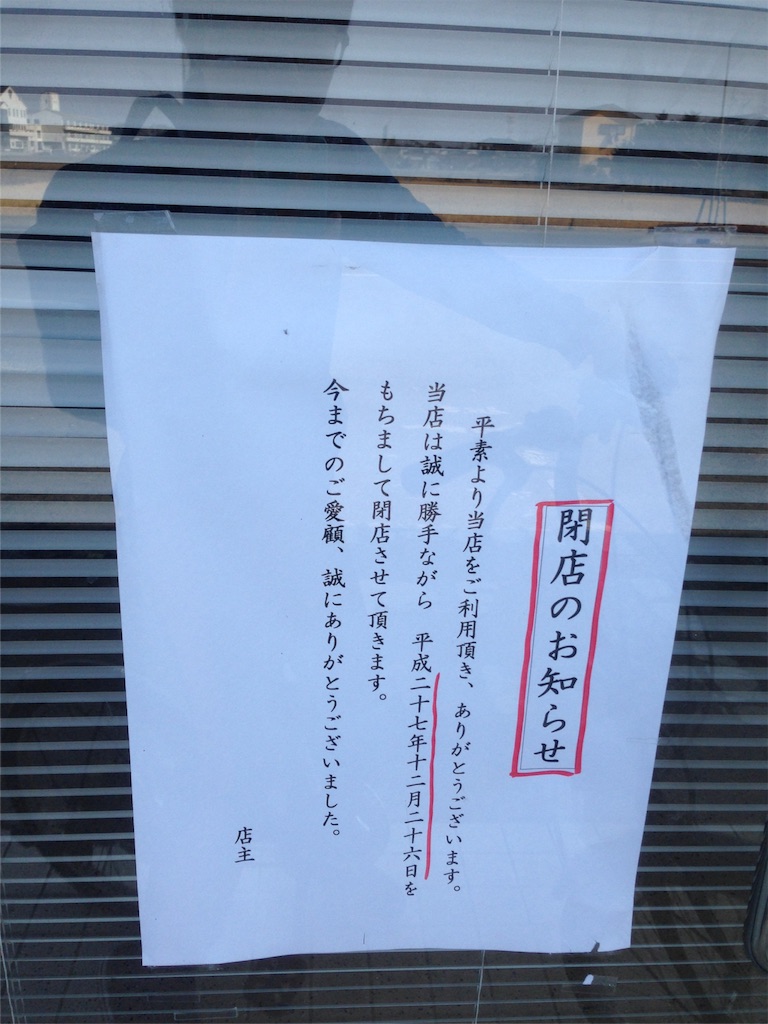 閉店のお知らせ
平素より当店をご利用頂き、ありがとうございます。
当店は誠に勝手ながら　平成二十七年十二月二十六日を
もちまして閉店させて頂きます。
今までのご愛顧、誠にありがとうございました。
店主